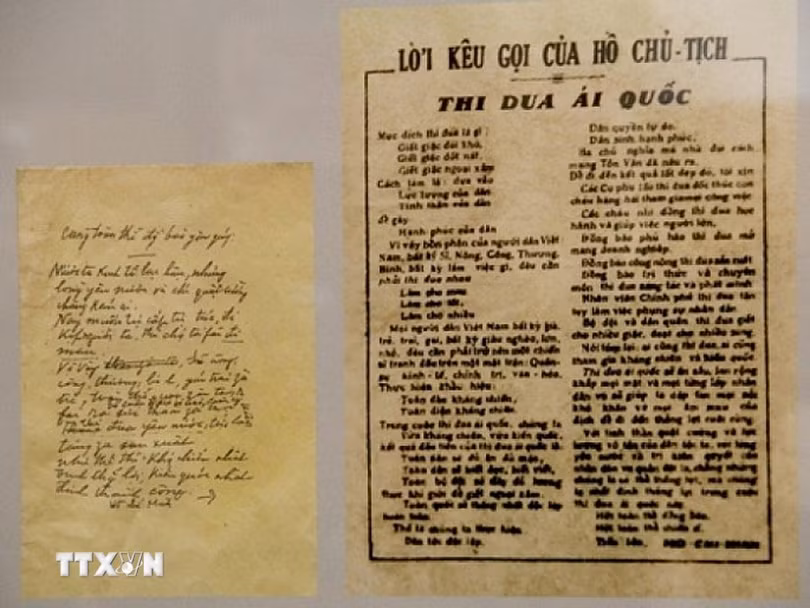 Cùng toàn thể đồng bào yêu quý
Nước ta kinh tế lạc hậu, nhưng
lòng yêu nước và chí quật cường
chẳng kém ai.
Nay muốn
người ta, thì chỉ có
Vì vậy sĩ, nông,
công, thương, binh, gái trai già
trẻ,
thi đua yêu nước,
tăng gia sản xuất
như thế thì kháng chiến nhất
định thắng lợi, kiến quốc nhất
định thành công.
LỜI KÊU GỌI CỦA HỒ CHỦ-TỊCH
THI DUA ÁI QUỐC
Mục đích thi đua là gì :
Giết giặc đói khổ,
Giết giặc dốt nát,
Giết giặc ngoại xâm
Cách làm là : dựa vào
Lực lượng của dân
Tinh thần của dân
để gây
Hạnh phúc của dân
Vì vậy bổn phận của người dân Việt
Nam, bất kỳ Sĩ, Nông, Công, Thương,
Binh, bất kỳ làm việc gì, đều cần
phải thi đua nhau
Làm cho mau
Làm cho tốt,
Làm cho nhiều
Mọi người dân Việt Nam bất kỳ già,
trẻ, trai, gái, bất kỳ giàu nghèo, lớn,
nhỏ, đều cần phải trở nên một chiến
sĩ tranh đấu trên mặt trận : Quân-
sự kinh-tế, chính trị, văn-hóa.
Thực hiện khẩu hiệu :
Toàn dân kháng chiến,
Toàn diện kháng chiến.
Trong cuộc thi đua ái quốc, chúng ta
Vừa kháng chiến, vừa kiến quốc,
kết quả đầu tiên của thi đua ái quốc là :
Toàn dân sẽ đủ ăn đủ mặc,
Toàn dân sẽ biết đọc, biết viết,
Toàn bộ đội sẽ đầy đủ lương
thực khí giới để giết ngoại xâm,
Toàn quốc sẽ thống nhất độc lập
hoàn toàn.
Thế là chúng ta thực hiện
Dân tộc độc lập.
Dân quyền tự do,
Dân sinh hạnh phúc,
Ba chủ nghĩa mà nhà đại cách
mạng Tôn Văn đã nêu ra.
Để đi đến kết quả tốt đẹp đó, tôi xin
Các Cụ phụ lão thi đua đốc thúc con
cháu hăng hái tham gia mọi công việc
Các cháu nhi đồng thi đua học
hành và giúp việc người lớn,
Đồng bào phú hào thi đua mở
mang doanh nghiệp.
Đồng bào công nông thi đua sản xuất
Đồng bào trí thức và chuyên
môn thi đua sáng tác và phát minh
Nhân viên Chính phủ thi đua tận
tụy làm việc phụng sự nhân dân.
Bộ đội và dân quân thi đua giết
cho nhiều giặc, đoạt cho nhiều súng.
Nói tóm lại, ai cũng thi đua, ai cũng
tham gia kháng chiến và kiến quốc.
Thi đua ái quốc sẽ ăn sâu, lan rộng
khắp mọi mặt và mọi từng lớp nhân
dân và sẽ giúp ta dẹp tan mọi nỗi
khó khăn và mọi âm mưu của
địch để đi đến thắng lợi cuối cùng.
Với tinh thần quật cường và lực
lượng vô tận của dân tộc ta, với lòng
yêu nước và chí kiên quyết của
nhân dân và quân đội ta, chẳng những
chúng ta có thể thắng lợi, mà chúng
ta nhất định thắng lợi trong cuộc
thi đua ái quốc này
Hỡi toàn thể đồng bào,
Hỡi toàn thể chiến sĩ,
Tiến lên. HỒ-CHÍ-MINH
TTXVN